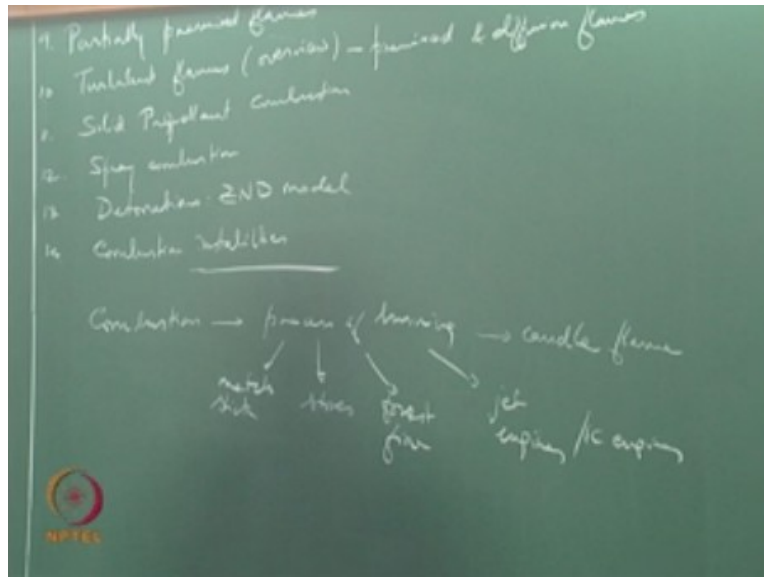 9. Partially premixed flames
10 Turbulent flames (overview) – premixed & diffusion flames
11. Solid Propellant combustion
12. Spray combustion
13 Detonations - ZND model
14 Combustion instabilities
Combustion → process of burning → candle flame
match stick stoves forest fires jet engines / IC engines
NPTEL